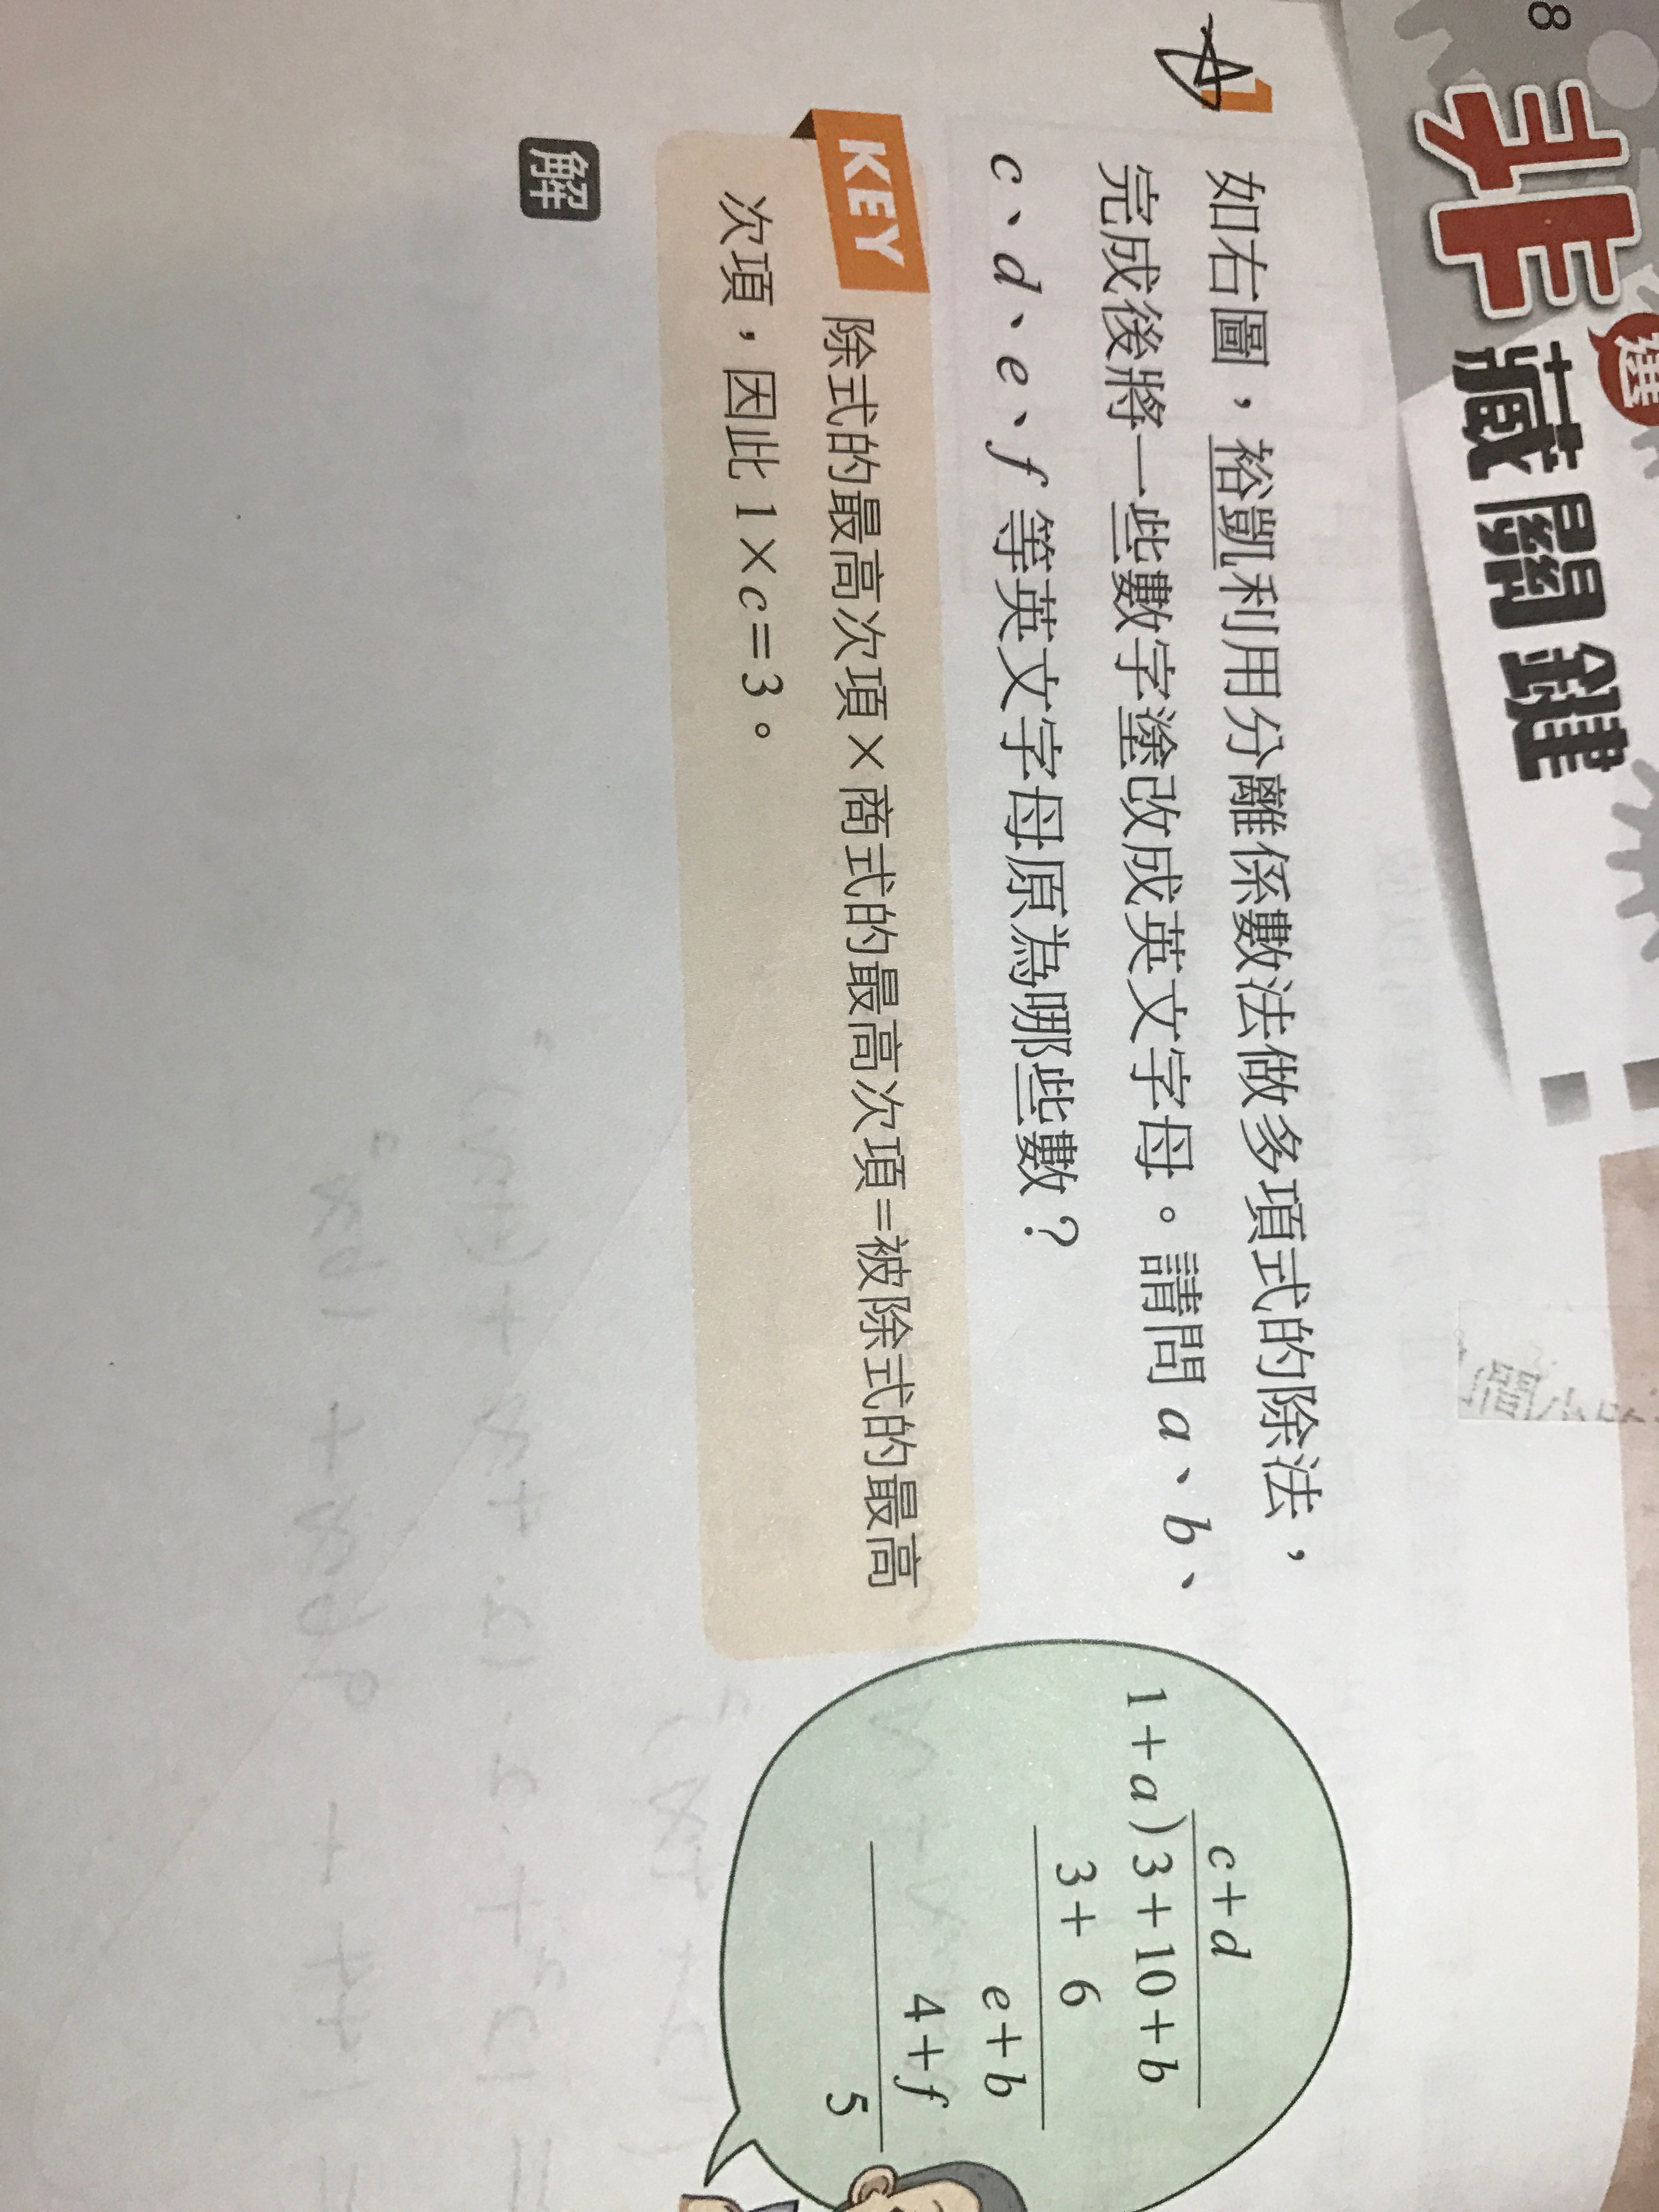 8
非
選
藏關鍵
1
如右圖，裕凱利用分離係數法做多項式的除法，
完成後將一些數字塗改成英文字母。請問 a、b、
c、d、e、f 等英文字母原為哪些數？
KEY
除式的最高次項×商式的最高次項=被除式的最高
次項，因此 1×c=3。
解
c+d
1+a)3+10+b
3+ 6
e+b
4+f
5